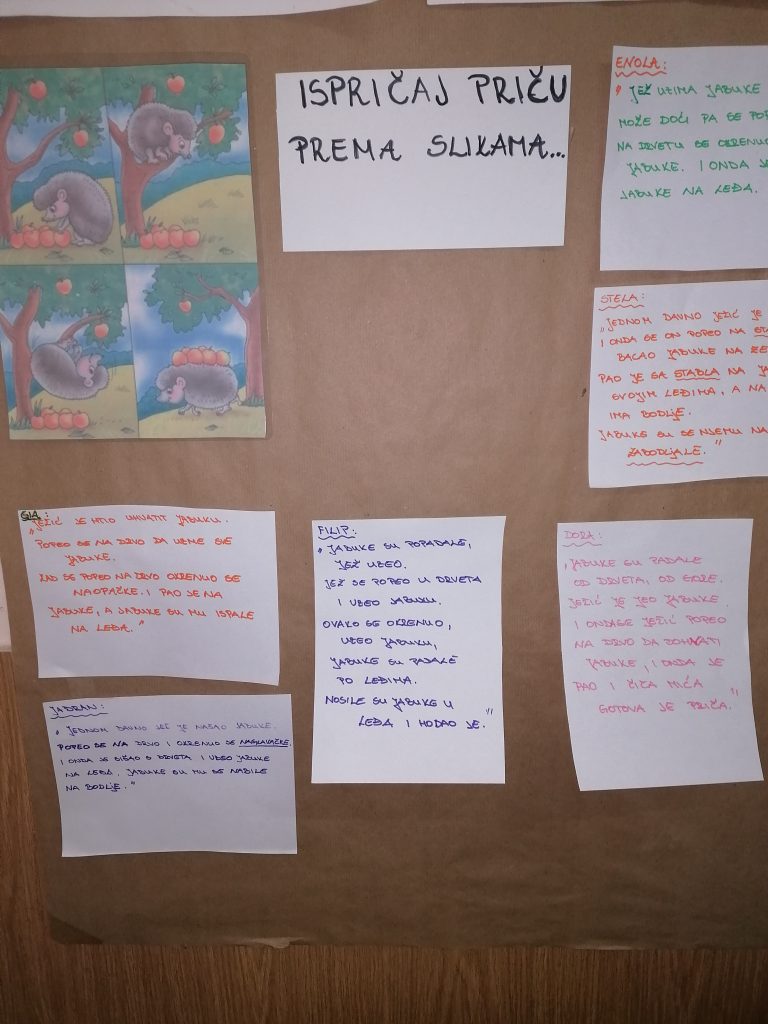 ISPRIČAJ PRIČU
PREMA SLIKAMA...
ENOLA:
" JEŽ UZIMA JABUKE
MOŽE DOĆI PA SE POP
NA DRVETU SE OKRENUO
JABUKE. I ONDA JE
JABUKE NA LEĐA.
STELA:
"JEDNOM DAVNO JEŽIĆ JE
I ONDA SE ON POPEO NA STA
BACAO JABUKE NA ZE
PAO JE SA STABLA NA JA
SVOJIM LEĐIMA, A NA
IMA BODLJE.
JABUKE SU SE NJEMU NA
ZABODLJALE."
GIA:
"JEŽIĆ JE HTIO UHVATIT JABUKU.
POPEO SE NA DRVO DA UZME SVE
JABUKE.
KAD SE POPEO NA DRVO OKRENUO SE
NAOPAČKE. I PAO JE NA
JABUKE, A JABUKE SU MU ISPALE
NA LEĐA."
FILIP:
" JABUKE SU POPADALE,
JEŽ UZEO.
JEŽ SE POPEO U DRVETA
I UZEO JABUKU.
OVAKO SE OKRENUO,
UZEO JABUKU,
JABUKE SU PADALE
PO LEĐIMA.
NOSILE SU JABUKE U
LEĐA I HODAO JE. "
DORA:
"JABUKE SU PADALE
OD DRVETA, OD GORE.
JEŽIĆ JE JEO JABUKE
I ONDA SE JEŽIĆ POPEO
NA DRVO DA DOHVATI
JABUKE, I ONDA JE
PAO I ČIČA MIĆA
GOTOVA JE PRIČA. "
JADRAN:
" JEDNOM DAVNO JEŽ JE NAŠAO JABUKE.
POPEO SE NA DRVO I OKRENUO SE NAGLAVAČKE.
I ONDA JE SIŠAO S DRVETA I UZEO JABUKE
NA LEĐA. JABUKE SU MU SE NABILE
NA BODLJE."